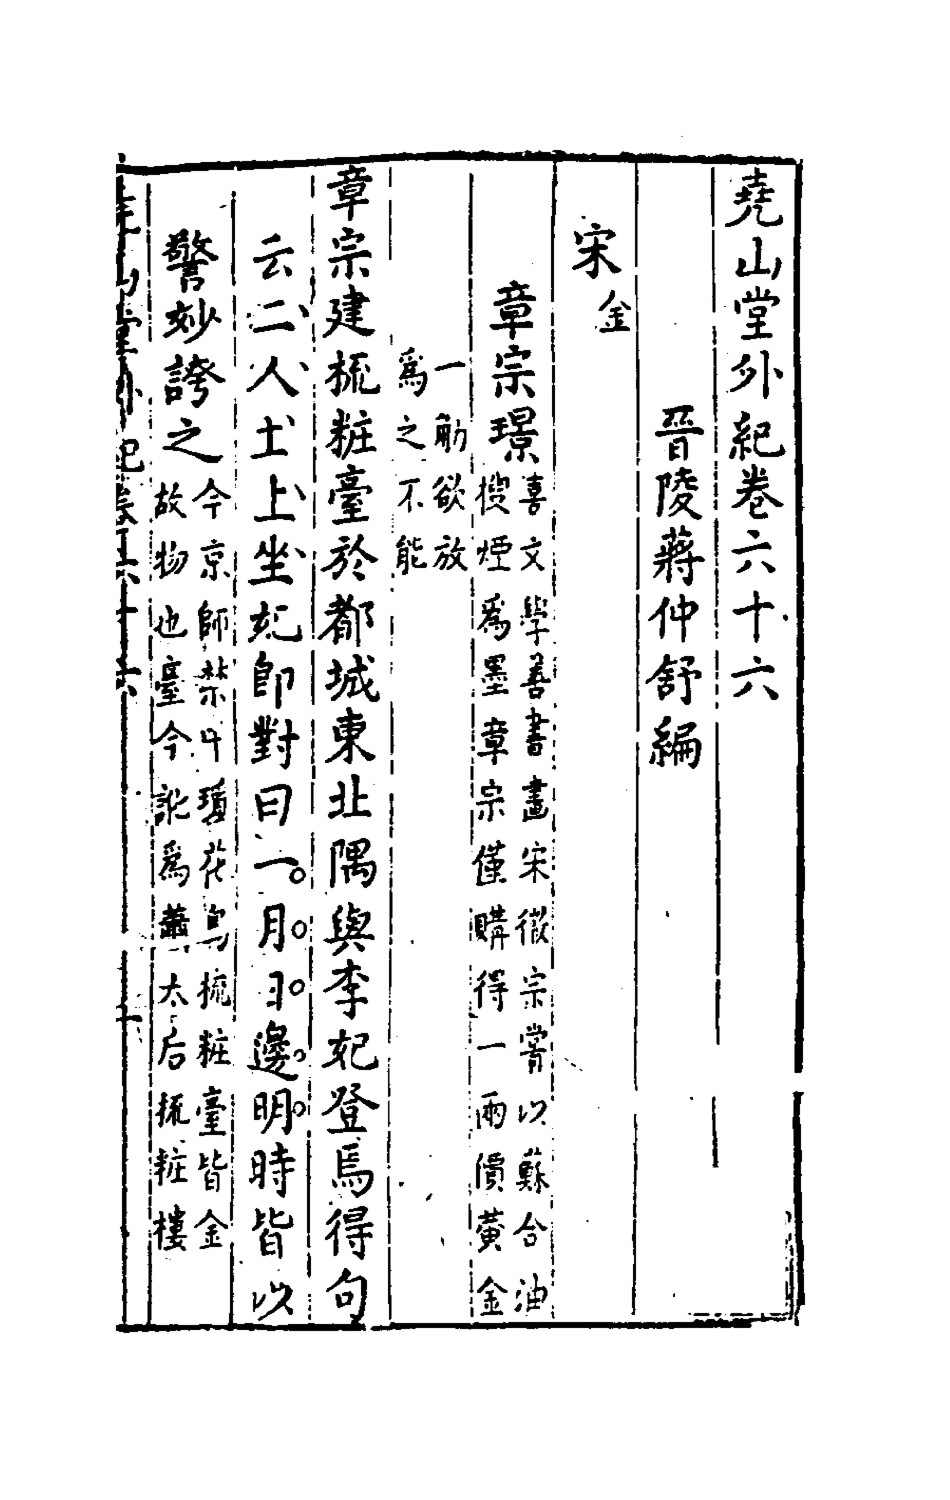 堯山堂外紀卷六十六
晉陵蔣仲舒編
宋金
章宗璟
喜文學善書畫宋徽宗嘗以蘇合油
搜煙爲墨章宗僅購得一兩價黃金
一觔欲放
爲之不能
章宗建梳粧臺於都城東北隅與李妃登焉得句
云二人土上坐妃即對曰一月日邊明時皆以
警妙誇之
今京師禁中瓊花島梳粧臺皆金
故物也臺今訛爲蕭太后梳粧樓
堯山堂外紀卷六十六
一